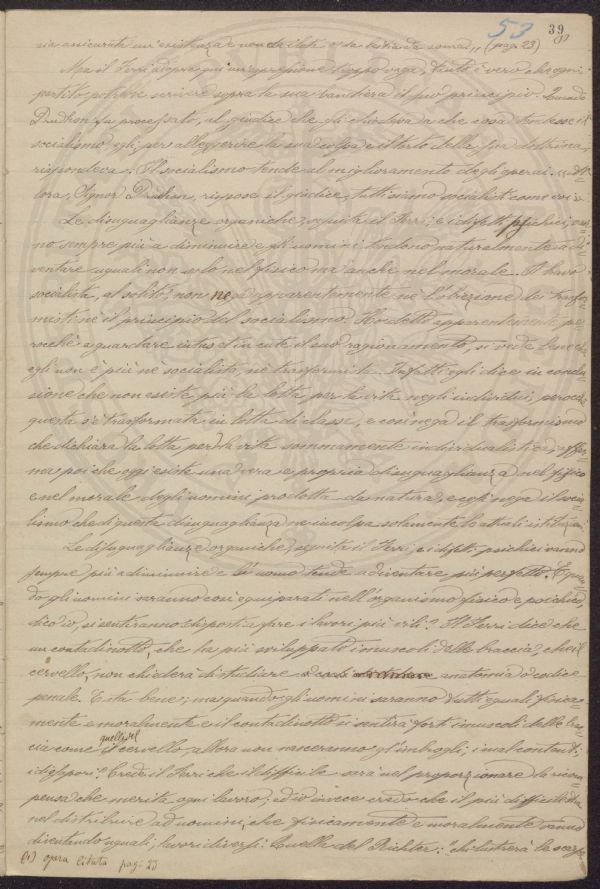 53 39
(1)
sia assicurata un'esistenza da uomo e non da bestia da soma,, (pag. 23)
Ma il Ferri adopra qui un'espressione troppo vaga, tanto è vero che ogni
partito potrebbe scrivere sopra la sua bandiera il suo principio. Quando
Prudhon fu processato, al giudice che gli chiedeva da che cosa tende il
socialismo, egli, per alleggerire la sua colpa e il torto della sua dottrina,
rispondeva: Il socialismo tende al miglioramento degli operai. ,, Al-
lora, Signor Prudhon, rispose il giudice, tutti siamo socialisti come voi ,,.
Le disuguaglianze organiche, seguita il Ferri, e i difetti psichici, van-
no sempre più a diminuire e gli uomini tendono naturalmente a di-
ventare uguali non solo nel fisico ma anche nel morale. Il bravo
socialista, al solito, non nega apparentemente nè l'obiezione dei trasfor-
misti nè il principio del socialismo. Ho detto apparentemente, pe-
rocchè a guardare intus et in cute il suo ragionamento, si vede bene che
egli non è più nè socialista, nè trasformista. Infatti egli dice in conclu-
sione che non esiste più la lotta per la vita negli individui, perocchè
questa s'è trasformata in lotta di classe, e così nega il trasformismo
che dichiara la lotta per la vita sommamente individualistica; affer-
ma poi che oggi esiste una vera e propria disuguaglianza nel fisico
e nel morale degli uomini prodotta da natura, e così nega il socia-
lismo che di queste disuguaglianze ne incolpa solamente le attuali istituzioni.
Le disuguaglianze organiche, seguita il Ferri, e i difetti psichici vanno
sempre più a diminuire e l'uomo tende a diventare più perfetto. E quan-
do gli uomini saranno così equiparati nell'organismo fisico e psichico,
dico io, si sentiranno disposti a fare i lavori più vili? Il Ferri dice che
un contadinotto, che ha più sviluppato i muscoli delle braccia, che il
cervello, non chiederà di studiare anatomia o codice
penale. E sta bene; ma quando gli uomini saranno tutti eguali fisica-
mente e moralmente e il contadinotto si sentirà forti i muscoli delle brac-
cia come quelli del cervello, allora non nasceranno gl'imbrogli, i malcontenti,
i dissapori? Crede il Ferri che il difficile sarà nel proporzionare la ricom-
pensa che merita ogni lavoro; ed io invece credo che il più difficile stia
nel distribuire ad uomini, che fisicamente e moralmente vanno
diventando uguali, lavori diversi. Quelle del Richter: "chi lustrerà le scarpe
(1) opera citata pag. 23